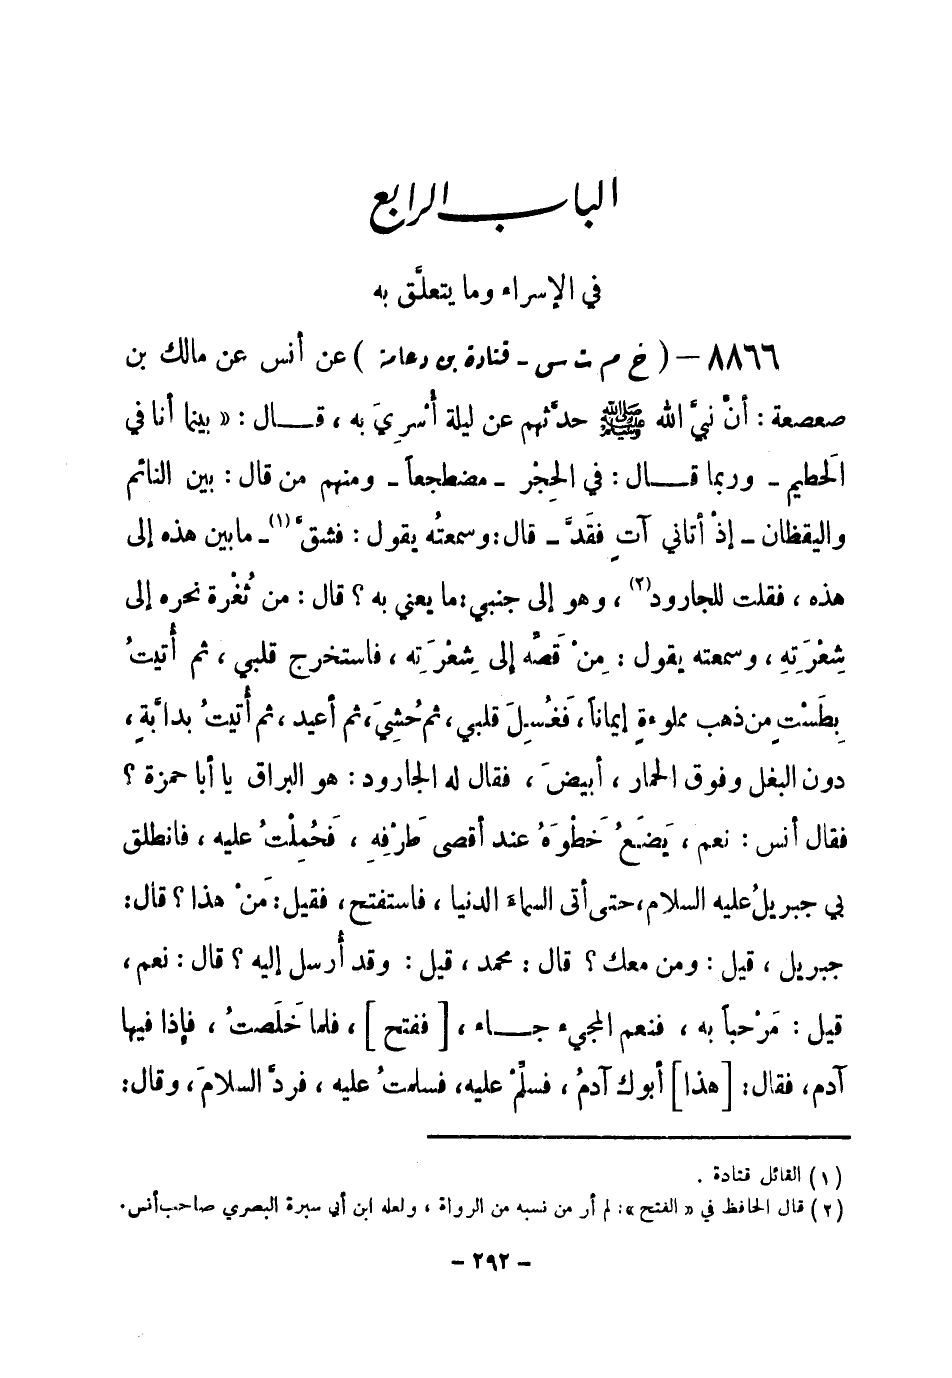 الباب الرابع
في الإسراء وما يتعلَّق به
٨٨٦٦ – ( خ م ت س - قتادة بن دعامة ) عن أنس عن مالك بن
صعصعة : أنَّ نبيَّ الله ﷺ حدَّثهم عن ليلة أُسْرِيَ به ، قــال : « بينما أنا في
الحَطيم – وربما قــال : في الحِجْر – مضطجعاً – ومنهم من قال : بين النائم
واليقظان – إذْ أتاني آتٍ فقَدَّ – قال : وسمعتُه يقول : فشقَّ (١) – ما بين هذه إلى
هذه ، فقلت للجارود (٢) ، وهو إلى جنبي : ما يعني به ؟ قال : من ثُغْرة نحره إلى
شِعْرَتِهِ ، وسمعته يقول : مِنْ قَصِّه إلى شِعْرَتِه ، فاستخرج قلبي ، ثم أُتيتُ
بِطَسْتٍ من ذهب مملوءةٍ إيماناً ، فَغُسِلَ قلبي ، ثم حُشِيَ ، ثم أعيد ، ثم أُتيتُ بدابَّةٍ ،
دون البغل وفوق الحمار ، أبيضَ ، فقال له الجارود : هو البراق يا أبا حمزة ؟
فقال أنس : نعم ، يَضَعُ خَطْوَهُ عند أقصى طَرْفِهِ ، فَحُمِلْتُ عليه ، فانطلق
بي جبريلُ عليه السلام ، حتى أتى السماءَ الدنيا ، فاستفتح ، فقيل : مَنْ هذا ؟ قال :
جبريل ، قيل : ومن معك ؟ قال : محمد ، قيل : وقد أُرسل إليه ؟ قال : نعم ،
قيل : مَرْحباً به ، فنعم المجيء جــاء ، [ ففتح ] ، فلما خَلَصتُ ، فإذا فيها
آدم ، فقال : [ هذا ] أبوك آدمُ ، فسلِّمْ عليه ، فسلمتُ عليه ، فردَّ السلامَ ، وقال :
(١) القائل قتادة .
(٢) قال الحافظ في « الفتح » : لم أر من نسبه من الرواة ، ولعله ابن أبي سبرة البصري صاحب أنس .
– ٢٩٢ –